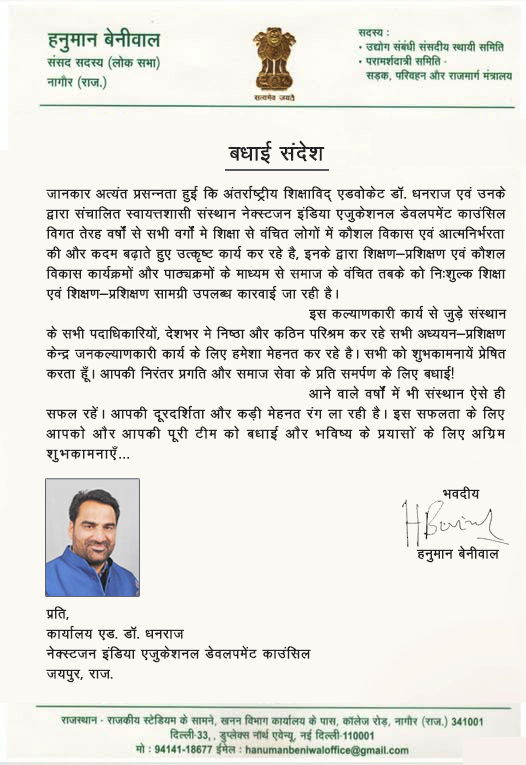 हनुमान बेनीवाल
संसद सदस्य (लोक सभा)
नागौर (राज.)
सत्यमेव जयते
सदस्य :
• उद्योग संबंधी संसदीय स्थायी समिति
• परामर्शदात्री समिति -
सड़क, परिवहन और राजमार्ग मंत्रालय
बधाई संदेश
जानकार अत्यंत प्रसन्नता हुई कि अंतर्राष्ट्रीय शिक्षाविद् एडवोकेट डॉ. धनराज एवं उनके
द्वारा संचालित स्वायत्तशासी संस्थान नेक्स्टजन इंडिया एजुकेशनल डेवलपमेंट काउंसिल
विगत तेरह वर्षों से सभी वर्गों मे शिक्षा से वंचित लोगों में कौशल विकास एवं आत्मनिर्भरता
की और कदम बढ़ाते हुए उत्कृष्ट कार्य कर रहे है, इनके द्वारा शिक्षण–प्रशिक्षण एवं कौशल
विकास कार्यक्रमों और पाठ्यक्रमों के माध्यम से समाज के वंचित तबके को निःशुल्क शिक्षा
एवं शिक्षण–प्रशिक्षण सामग्री उपलब्ध कारवाई जा रही है।
इस कल्याणकारी कार्य से जुड़े संस्थान
के सभी पदाधिकारियों, देशभर मे निष्ठा और कठिन परिश्रम कर रहे सभी अध्ययन–प्रशिक्षण
केन्द्र जनकल्याणकारी कार्य के लिए हमेशा मेहनत कर रहे है। सभी को शुभकामनायें प्रेषित
करता हूँ। आपकी निरंतर प्रगति और समाज सेवा के प्रति समर्पण के लिए बधाई!
आने वाले वर्षों में भी संस्थान ऐसे ही
सफल रहें। आपकी दूरदर्शिता और कड़ी मेहनत रंग ला रही है। इस सफलता के लिए
आपको और आपकी पूरी टीम को बधाई और भविष्य के प्रयासों के लिए अग्रिम
शुभकामनाएँ...
भवदीय
हनुमान बेनीवाल
प्रति,
कार्यालय एड. डॉ. धनराज
नेक्स्टजन इंडिया एजुकेशनल डेवलपमेंट काउंसिल
जयपुर, राज.
राजस्थान - राजकीय स्टेडियम के सामने, खनन विभाग कार्यालय के पास, कॉलेज रोड़, नागौर (राज.) 341001
दिल्ली-33, , डुप्लेक्स नॉर्थ एवेन्यू, नई दिल्ली-110001
मो : 94141-18677 ईमेल : hanumanbeniwaloffice@gmail.com